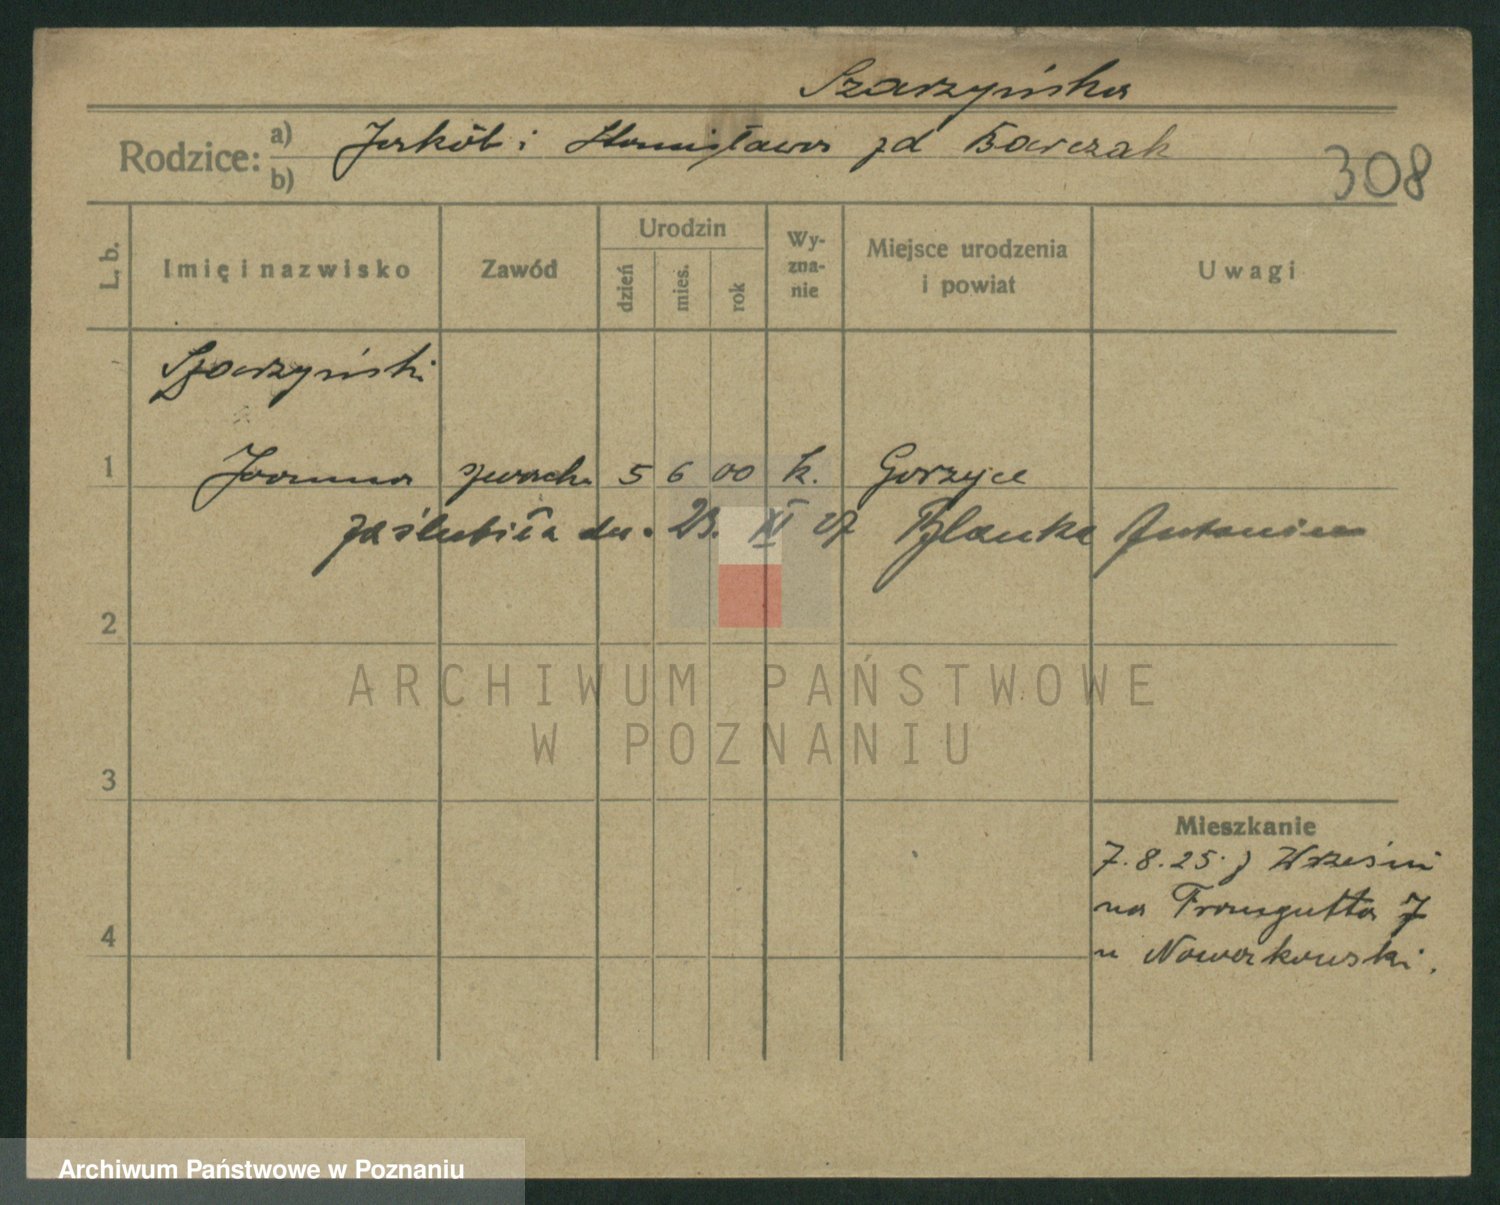 Szarzyńska
Rodzice: a) b) Jakób i Stanisława zd Barczak
308
L. b. Imię i nazwisko Zawód Urodzin dzień mies. rok Wy-zna-nie Miejsce urodzenia i powiat Uwagi
Szarzyński
1 Joanna szwacz. 5 6 00 k. Gorzyce
zaślubiła dn. 23. XI 27 Blanke Antonim
2
ARCHIWUM PAŃSTWOWE
W POZNANIU
3
Mieszkanie
7.8.25. z Wrześni
na Traugutta 7
4
u Nowakowski.
Archiwum Państwowe w Poznaniu